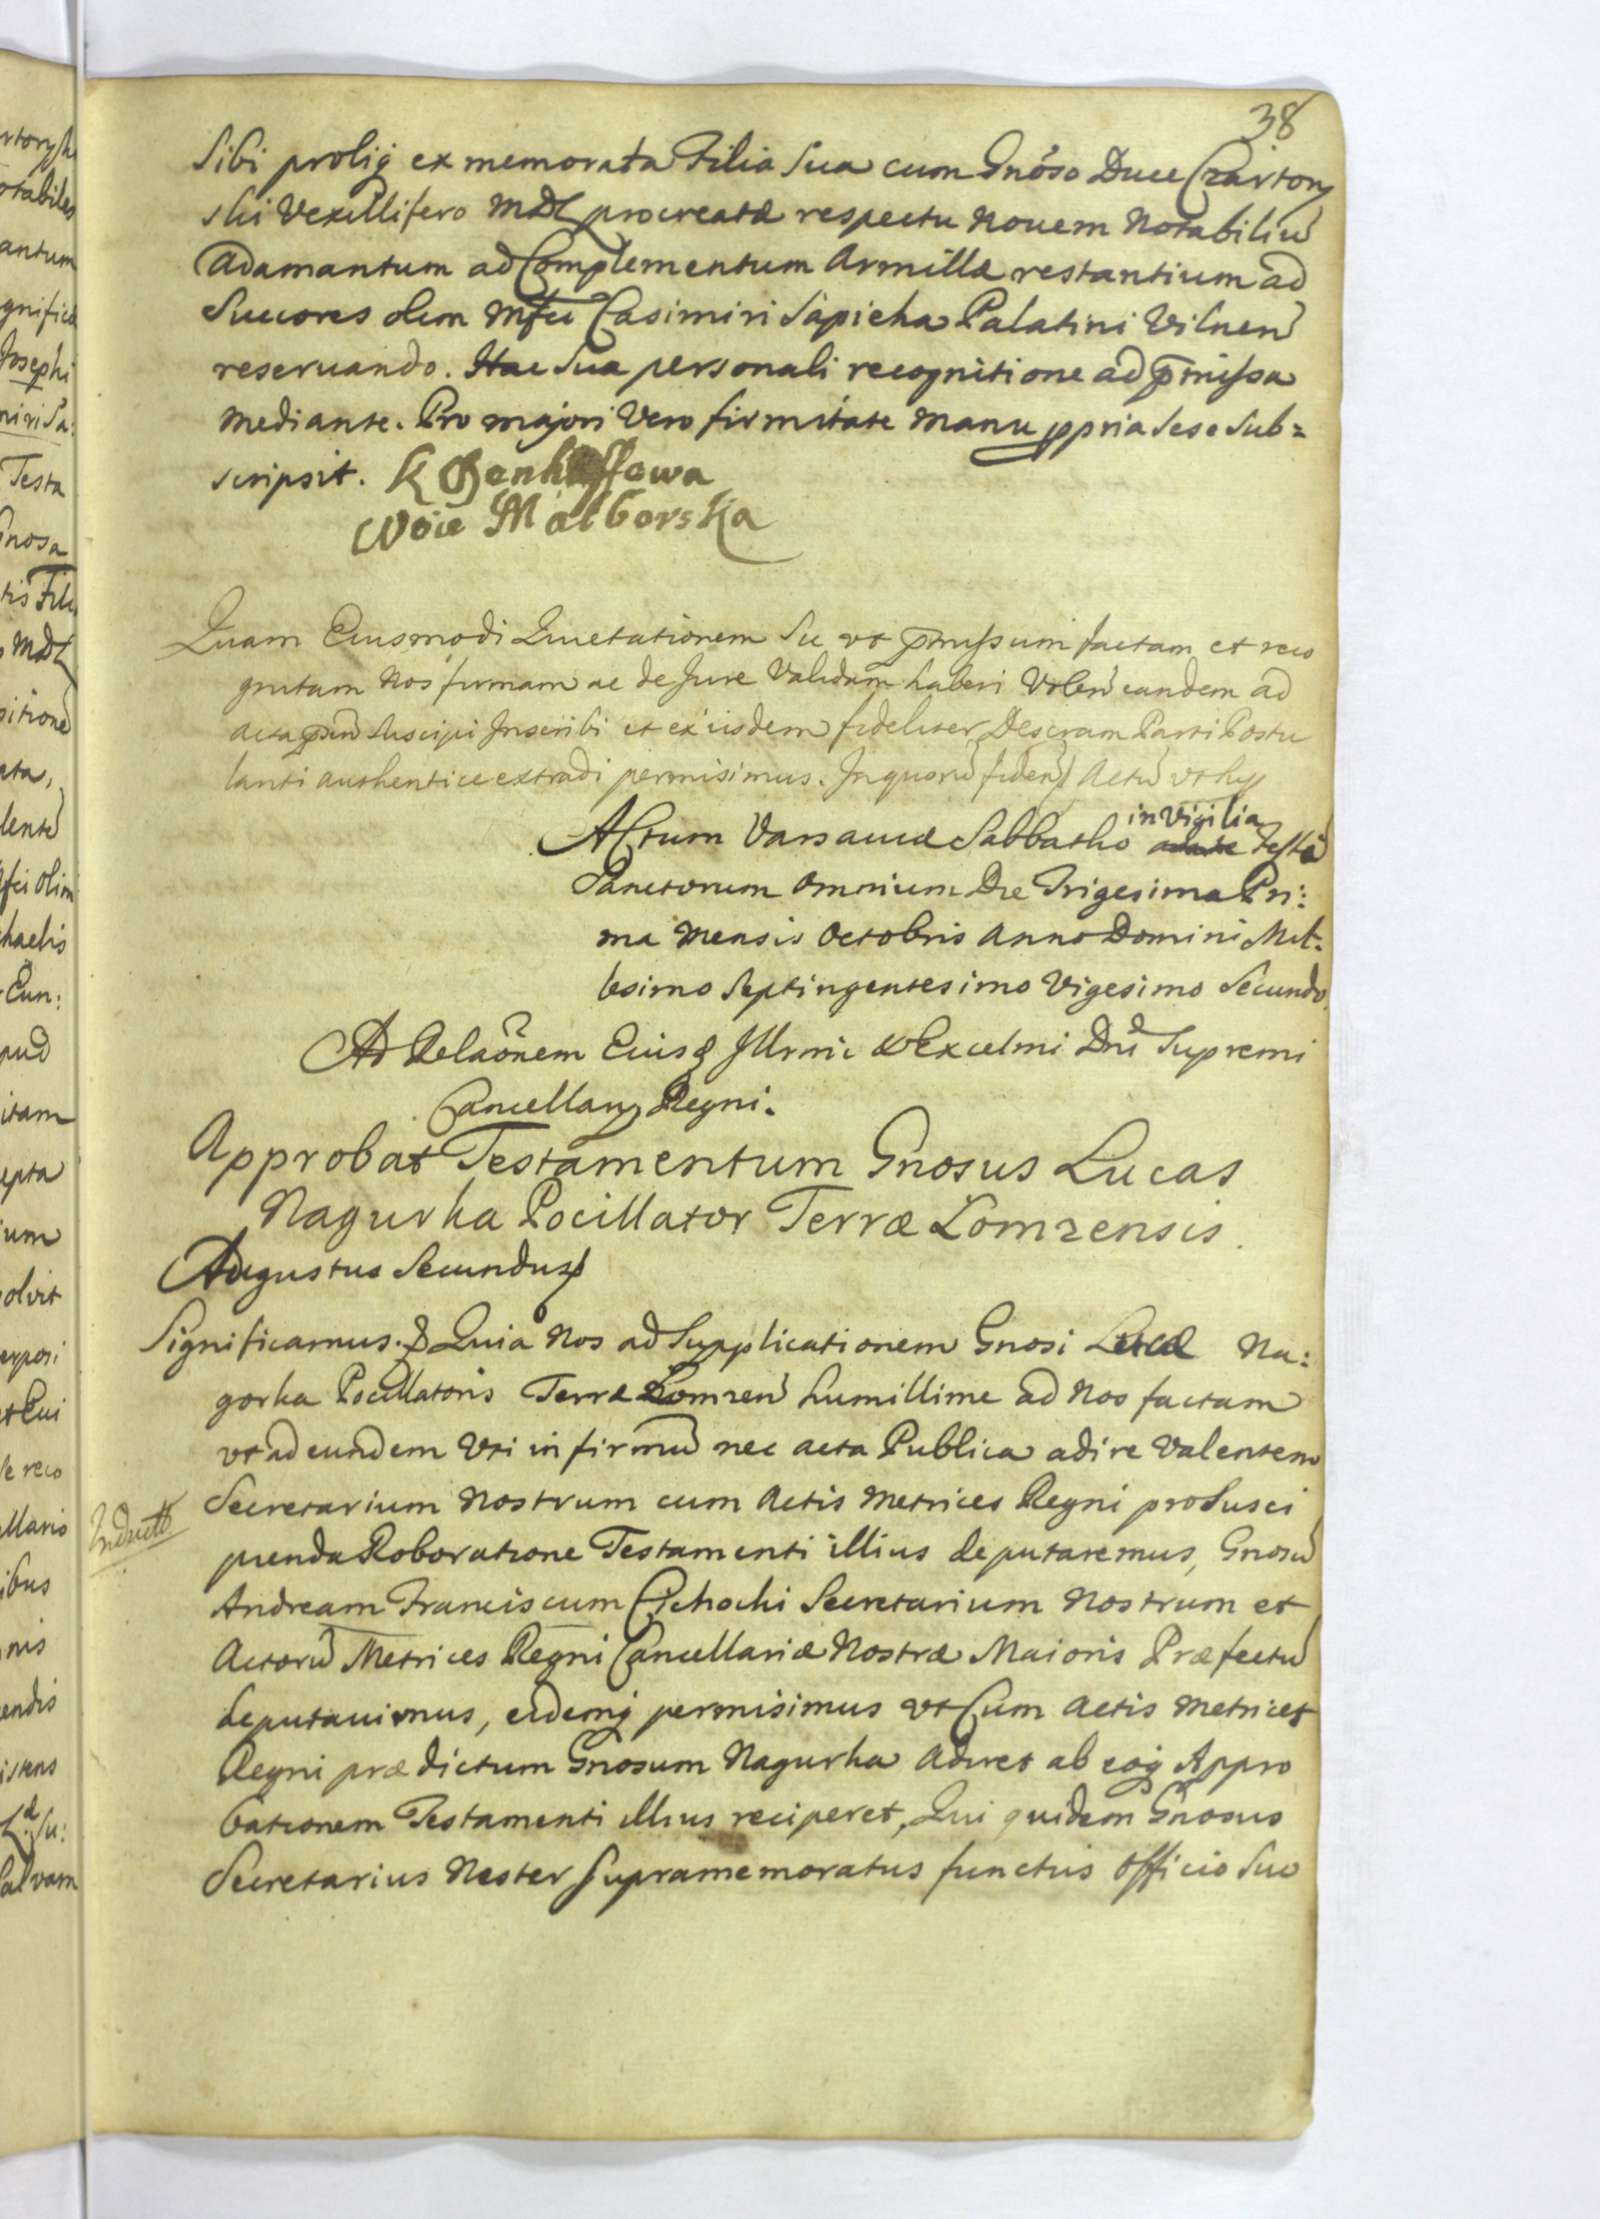 38
Sibi proliq ex memorata Filia Sua cum Gnoso Duce Czartory
ski Vexillifero MDL procreatæ respectu Nouem Notabiliu
Adamantum ad Complementum Armillæ restantium ad
Succores olim Mfci Casimiri Sapieha Palatini Vilnen
reseruando. Hac Sua personali recognitione ad pmissa
mediante. Pro majori Vero firmitate Manu ppria Sese Sub=
scripsit.
Woie Malborska
Quam Eiusmodi Quietationem Sic vt pmissum factam et reco
gnitam Nos firmam ac de Jure Validam haberi Volen eandem ad
Acta pn Suscipi Inscribi et ex iisdem fideliter Descram Parti Postu
lanti authentice extradi permisimus. In quoru fidem Actu
Actum Varsauiæ Sabbatho in Vigilia Festi
Sanctorum Omnium Die Trigesima Pri:
ma Mensis Octobris Anno Domini Mil:
lesimo Septingentesimo Vigesimo Secundo
Ad Relaonem Eiusd Illrmi & Excelmi Dni Supremi
Cancellarij Regni.
Approbat Testamentum Gnosus Lucas
Nagurka Pocillator Terræ Lomzensis.
Augustus Secundus
Significamus. & Quia Nos ad Supplicationem Gnosi Lucæ Na:
gorka Pocillatoris Terræ Lomzen humillime ad Nos factam
vt ad eundem Vti infirmu nec acta Publica adire Valentem
Secretarium Nostrum cum Actis Metrices Regni pro Susci
pienda Roboratione Testamenti illius deputaremus, Gnosu
Andream Franciscum Cichocki Secretarium Nostrum et
Actoru Metrices Regni Cancellariæ Nostræ Maioris Præfectu
deputauimus, eidemq permisimus vt Cum Actis Metrices
Regni prædictum Gnosum Nagurka Adiret ab eoq Appro
bationem Testamenti illius reciperet, Qui quidem Gnosus
Secretarius Noster Supramemoratus functus Officio Suo